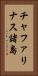 チャファリ
ナス諸島